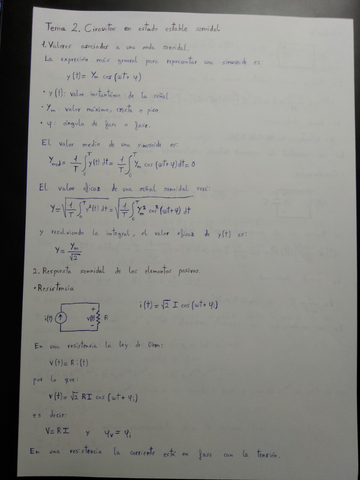 Tema 2. Circuitos en estado estable senoidal
1. Valores asociados a una onda senoidal.
La expresión más general para representar una sinusoide es:
y(t) = Ym cos(ωt + φ)
• y(t): valor instantáneo de la señal.
• Ym: valor máximo, cresta o pico
• φ: ángulo de fase o fase.
El valor medio de una sinusoide es:
Ymed = 1/T ∫₀ᵀ y(t) dt = 1/T ∫₀ᵀ Ym cos(ωt + φ) dt = 0
El valor eficaz de una señal senoidal será:
Y = √(1/T ∫₀ᵀ y²(t) dt) = √(1/T ∫₀ᵀ Ym² cos²(ωt + φ) dt)
y resolviendo la integral, el valor eficaz de y(t) es:
Y = Ym/√2
2. Respuesta senoidal de los elementos pasivos
• Resistencia
i(t) = √2 I cos(ωt + φi)
i(t) + v(t) - R
En una resistencia la ley de Ohm:
v(t) = R · i(t)
por lo que:
v(t) = √2 R I cos(ωt + φi)
es decir:
V = R I y φv = φi
En una resistencia la corriente está en fase con la tensión.